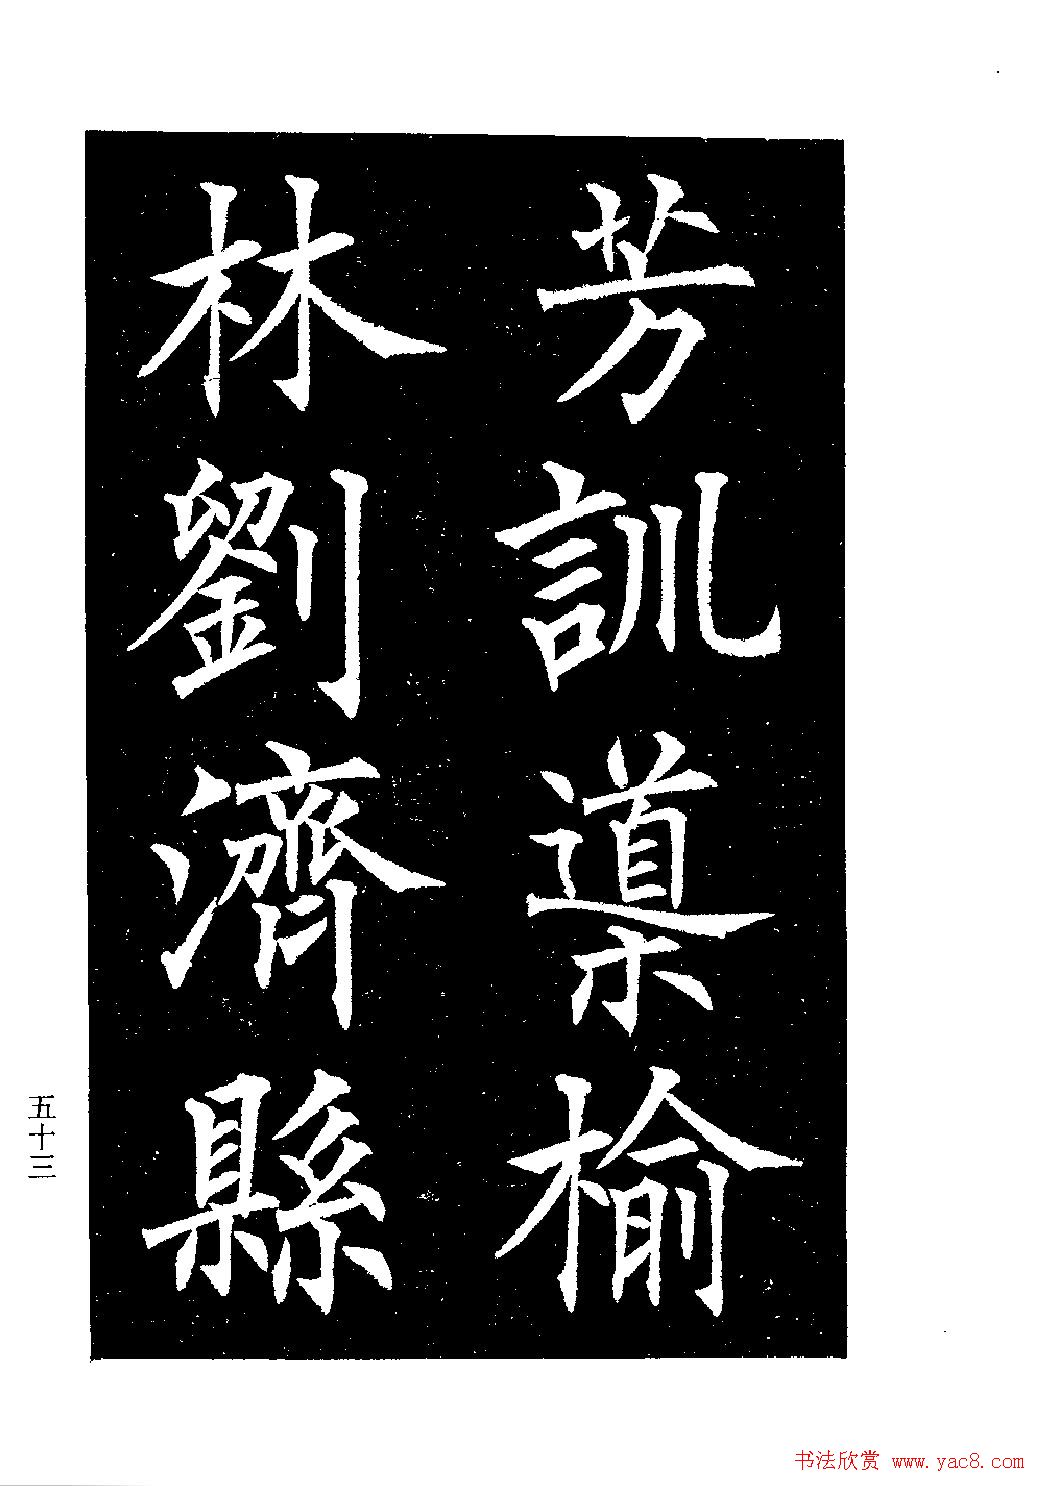 芳訓導榆
林劉濟縣
五十三
书法欣赏 www.yac8.com